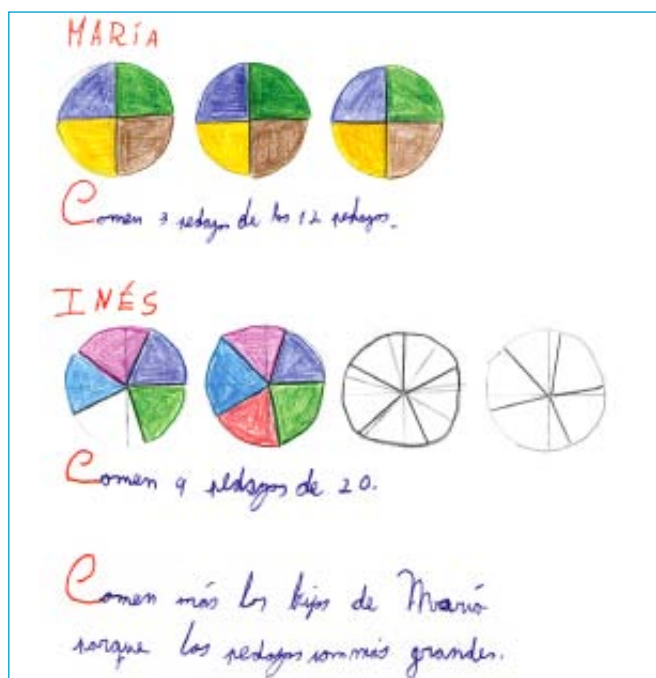 MARÍA
Comen 3 pedazos de los 12 pedazos.
INÉS
Comen 9 pedazos de 20.
Comen más los hijos de María
porque los pedazos son más grandes.